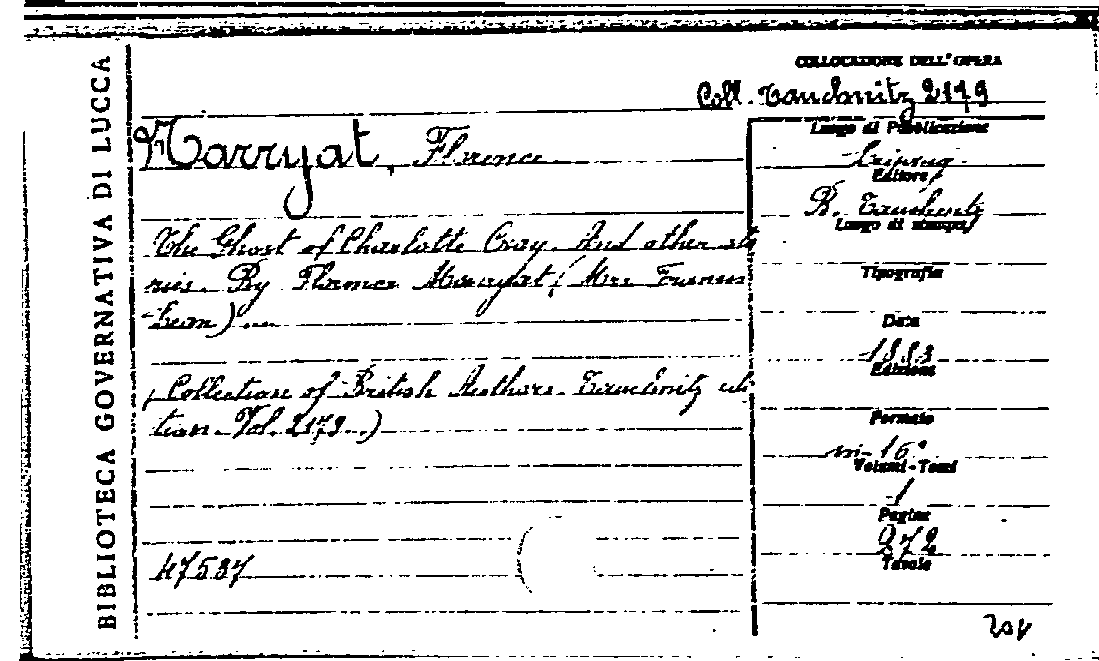 BIBLIOTECA GOVERNATIVA DI LUCCA
COLLOCAZIONE DELL'OPERA
Coll. Tauchnitz 2179
Marryat, Florence
The Ghost of Charlotte Cray. And other sto
ries. By Florence Marryat (Mrs Francis
Lean)...
(Collection of British Authors. Tauchnitz edi
tion. Vol. 2179.)
47587
Luogo di Pubblicazione
Leipzig
Editore
B. Tauchnitz
Luogo di stampa
Tipografia
Data
1883
Edizione
Formato
in-16°
Volumi-Tomi
1
Pagine
272
Tavole